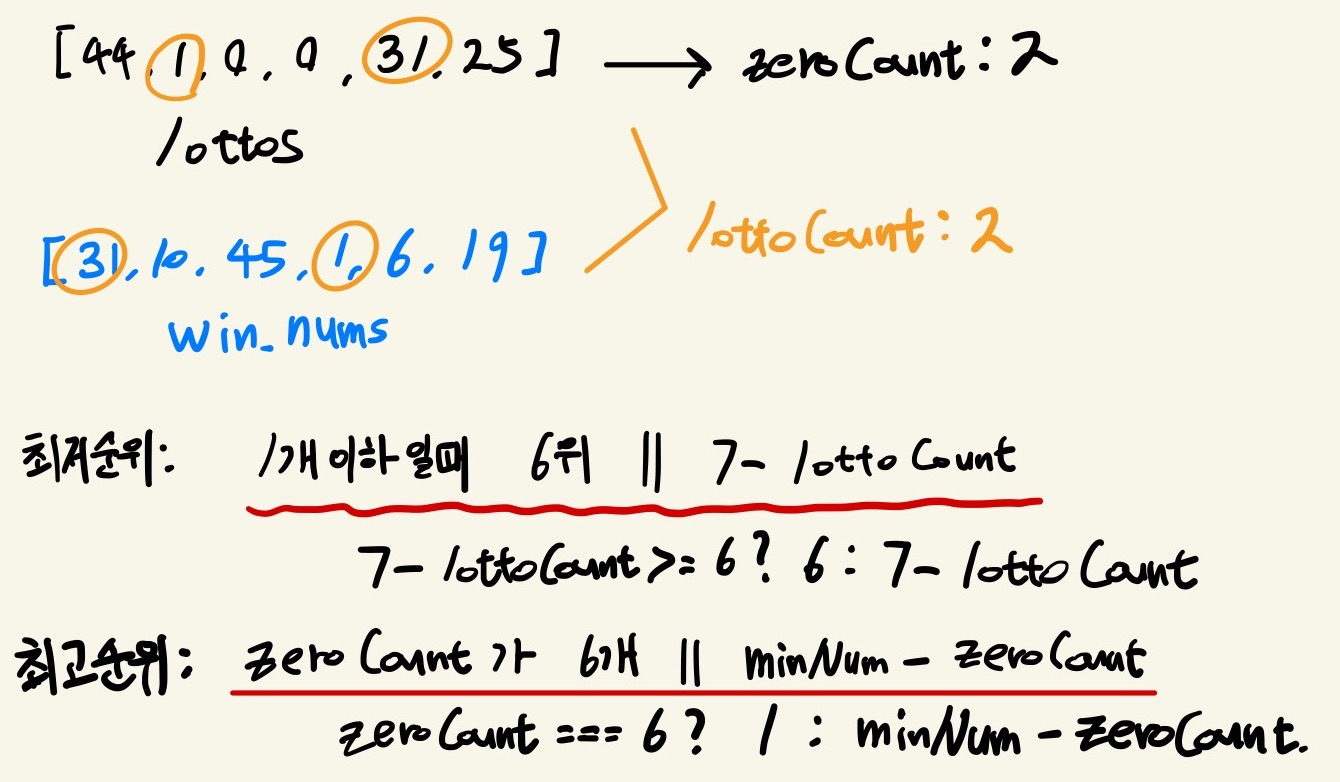 [44, 1, 0, 0, 31, 25] → zeroCount: 2
lottos
lottoCount: 2
[31, 10, 45, 1, 6, 19]
win_nums
최저순위: 1개 이하 일때 6위 || 7- lottoCount
7- lottoCount >= 6 ? 6 : 7- lottoCount
최고순위: zeroCount가 6개 || minNum - zeroCount
zeroCount === 6 ? 1 : minNum - zeroCount.